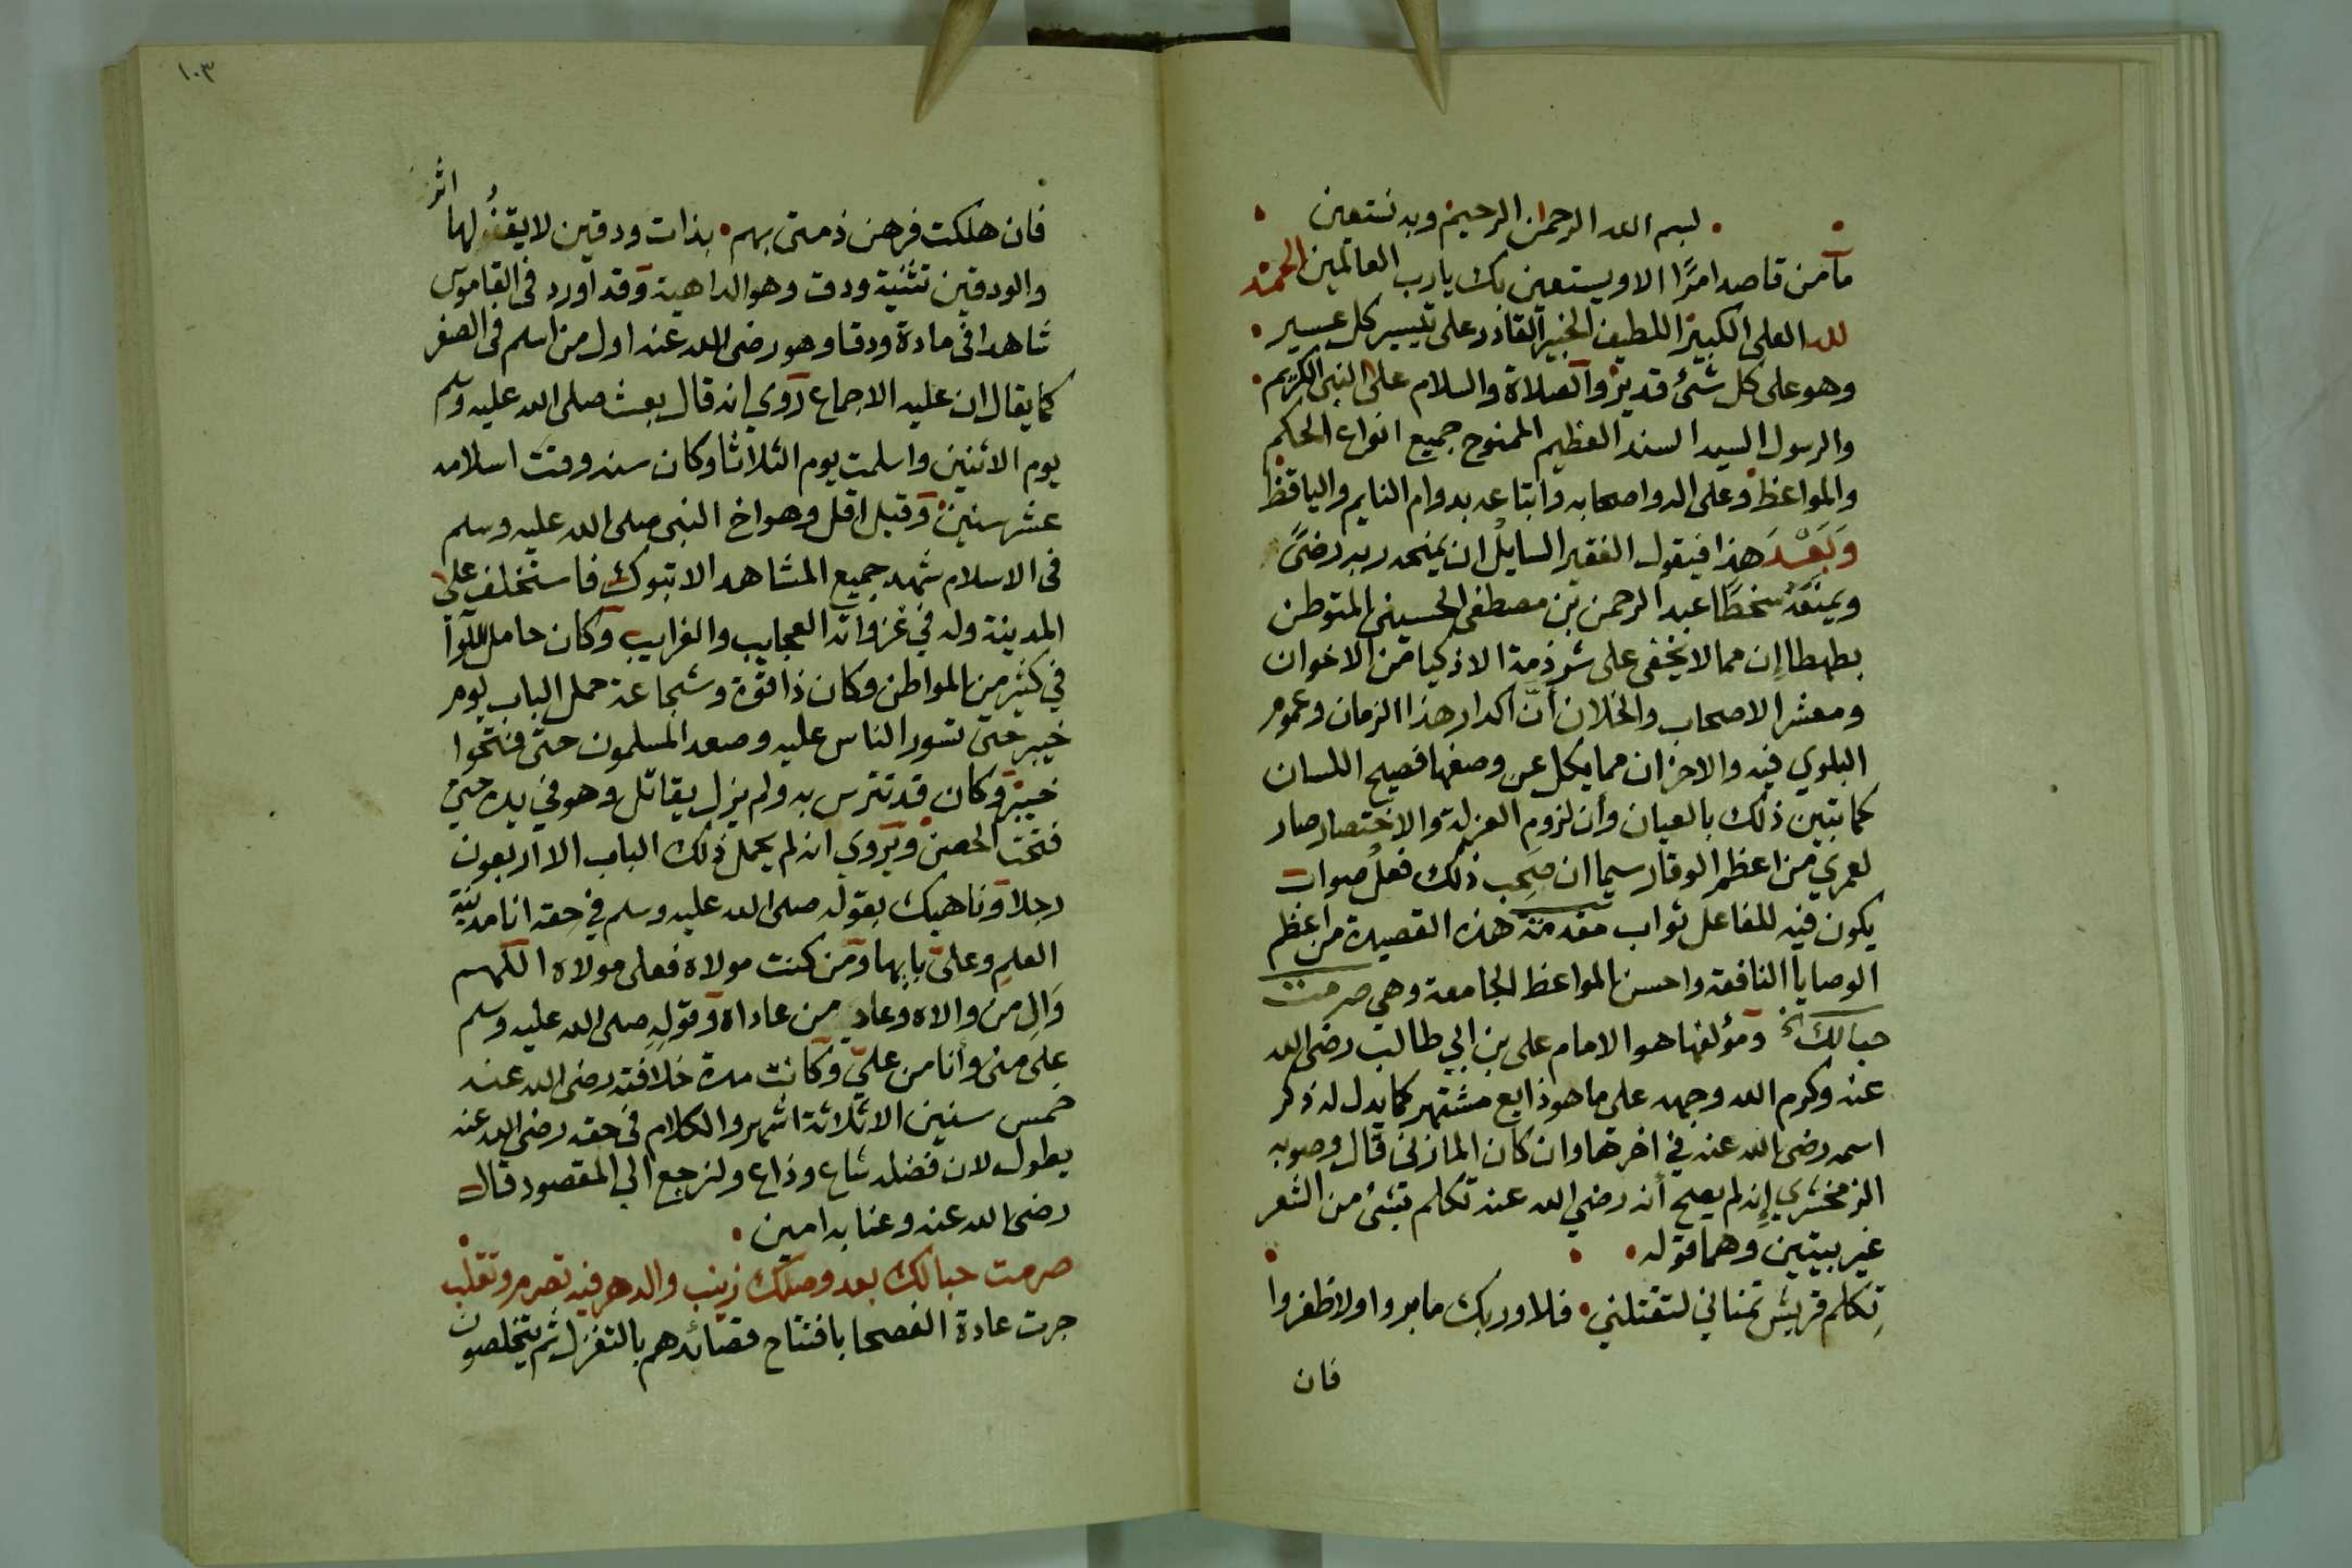 بسم الله الرحمن الرحيم وبه نستعين
ما من قاصد امرًا الا ويستعين بك يا رب العالمين الحمد
لله العلي الكبير اللطيف الخبير القادر على تيسير كل عسير
وهو على كل شئ قدير والصلاة والسلام على النبي الكريم
والرسول السيد السند العظيم الممنوح جميع انواع الحكم
والمواعظ وعلى اله واصحابه واتباعه بدوام النايم والياقظ
وَبَعْدَ هذا فيقول الفقير السايل ان يمنحه ربه رضىً
ويمنعه سخطًا عبد الرحمن بن مصطفى الحسيني المتوطن
بطهطا إن مما لا يخفى على شرذمة الاذكيا من الاخوان
ومعشر الاصحاب والخلان أنّ اكدار هذا الزمان وعموم
البلوي فيه والاحزان مما يكل عن وصفها فصيح اللسان
كما تبين ذلك بالعيان وأن لزوم العزلة والاختصار صار
لعمري من اعظم الوقار سيما ان صَحِب ذلك فعلُ صواب
يكون فيه للفاعل ثواب مقدمة هذه القصيدة من اعظم
الوصايا النافعة واحسن المواعظ الجامعة وهي صرمت
حبالك الخ ومؤلفها هو الامام على بن ابي طالب رضى الله
عنه وكرم الله وجهه على ما هو ذايع مشتهر كما يدل له ذكر
اسمه رضى الله عنه في اخرها وان كان المازنى قال وصوبه
الزمخشري إنه لم يصح أنه رضي الله عنه تكلم بشئ من الشعر
غير بيتين وهما قوله
تِكلم قريش تمناني لتقتلني فلا وربك ما بروا ولا ظفروا
فان
١٠٣
فان هلكت فرهن ذمتى بهم بذات ودقين لا يقفُو لها اثر
والودقين تثنية ودق وهو الداهية وقد اورد في القاموس
شاهدا في مادة ودقا وهو رضى الله عنه اول من اسلم في الصغر
كما يقال ان عليه الاجماع روي انه قال بعث صلى الله عليه وسلم
يوم الاثنين واسلمت يوم الثلاثا وكان سنه وقت اسلامه
عشر سنين وقيل اقل وهو اخ النبي صلى الله عليه وسلم
في الاسلام شهد جميع المشاهد الا تبوك فاستخلف على
المدينة وله في غزواته العجايب والغرايب وكان حامل اللوا
في كثير من المواطن وكان ذا قوة وشجاعة حمل الباب يوم
خيبر حتى تسور الناس عليه وصعد المسلمون حتى فتحوا
خيبر وكان قد تترس به ولم يزل يقاتل وهو في يده حتى
فتحت الحصن ويروي انه لم يحمل ذلك الباب الا اربعون
رجلا وناهيك بقوله صلى الله عليه وسلم في حقه انا مدينة
العلم وعلى بابها ومن كنت مولاه فعلى مولاه اللهم
وَالِ من والاه وعاد من عاداه وقولِهِ صلى الله عليه وسلم
على منى وأنا من علي وكانت مدة خلافته رضى الله عنه
خمس سنين الا ثلاثة اشهر والكلام في حقه رضى الله عنه
يطول لان فضله شاع وذاع ولنرجع الي المقصود قال
رضى الله عنه وعنا به امين
صرمت حبالك بعد وصلك زينب والدهر فيه تصرم وتقلب
جرت عادة الفصحا بافتتاح قصائدهم بالتغزل ثم يتخلصون